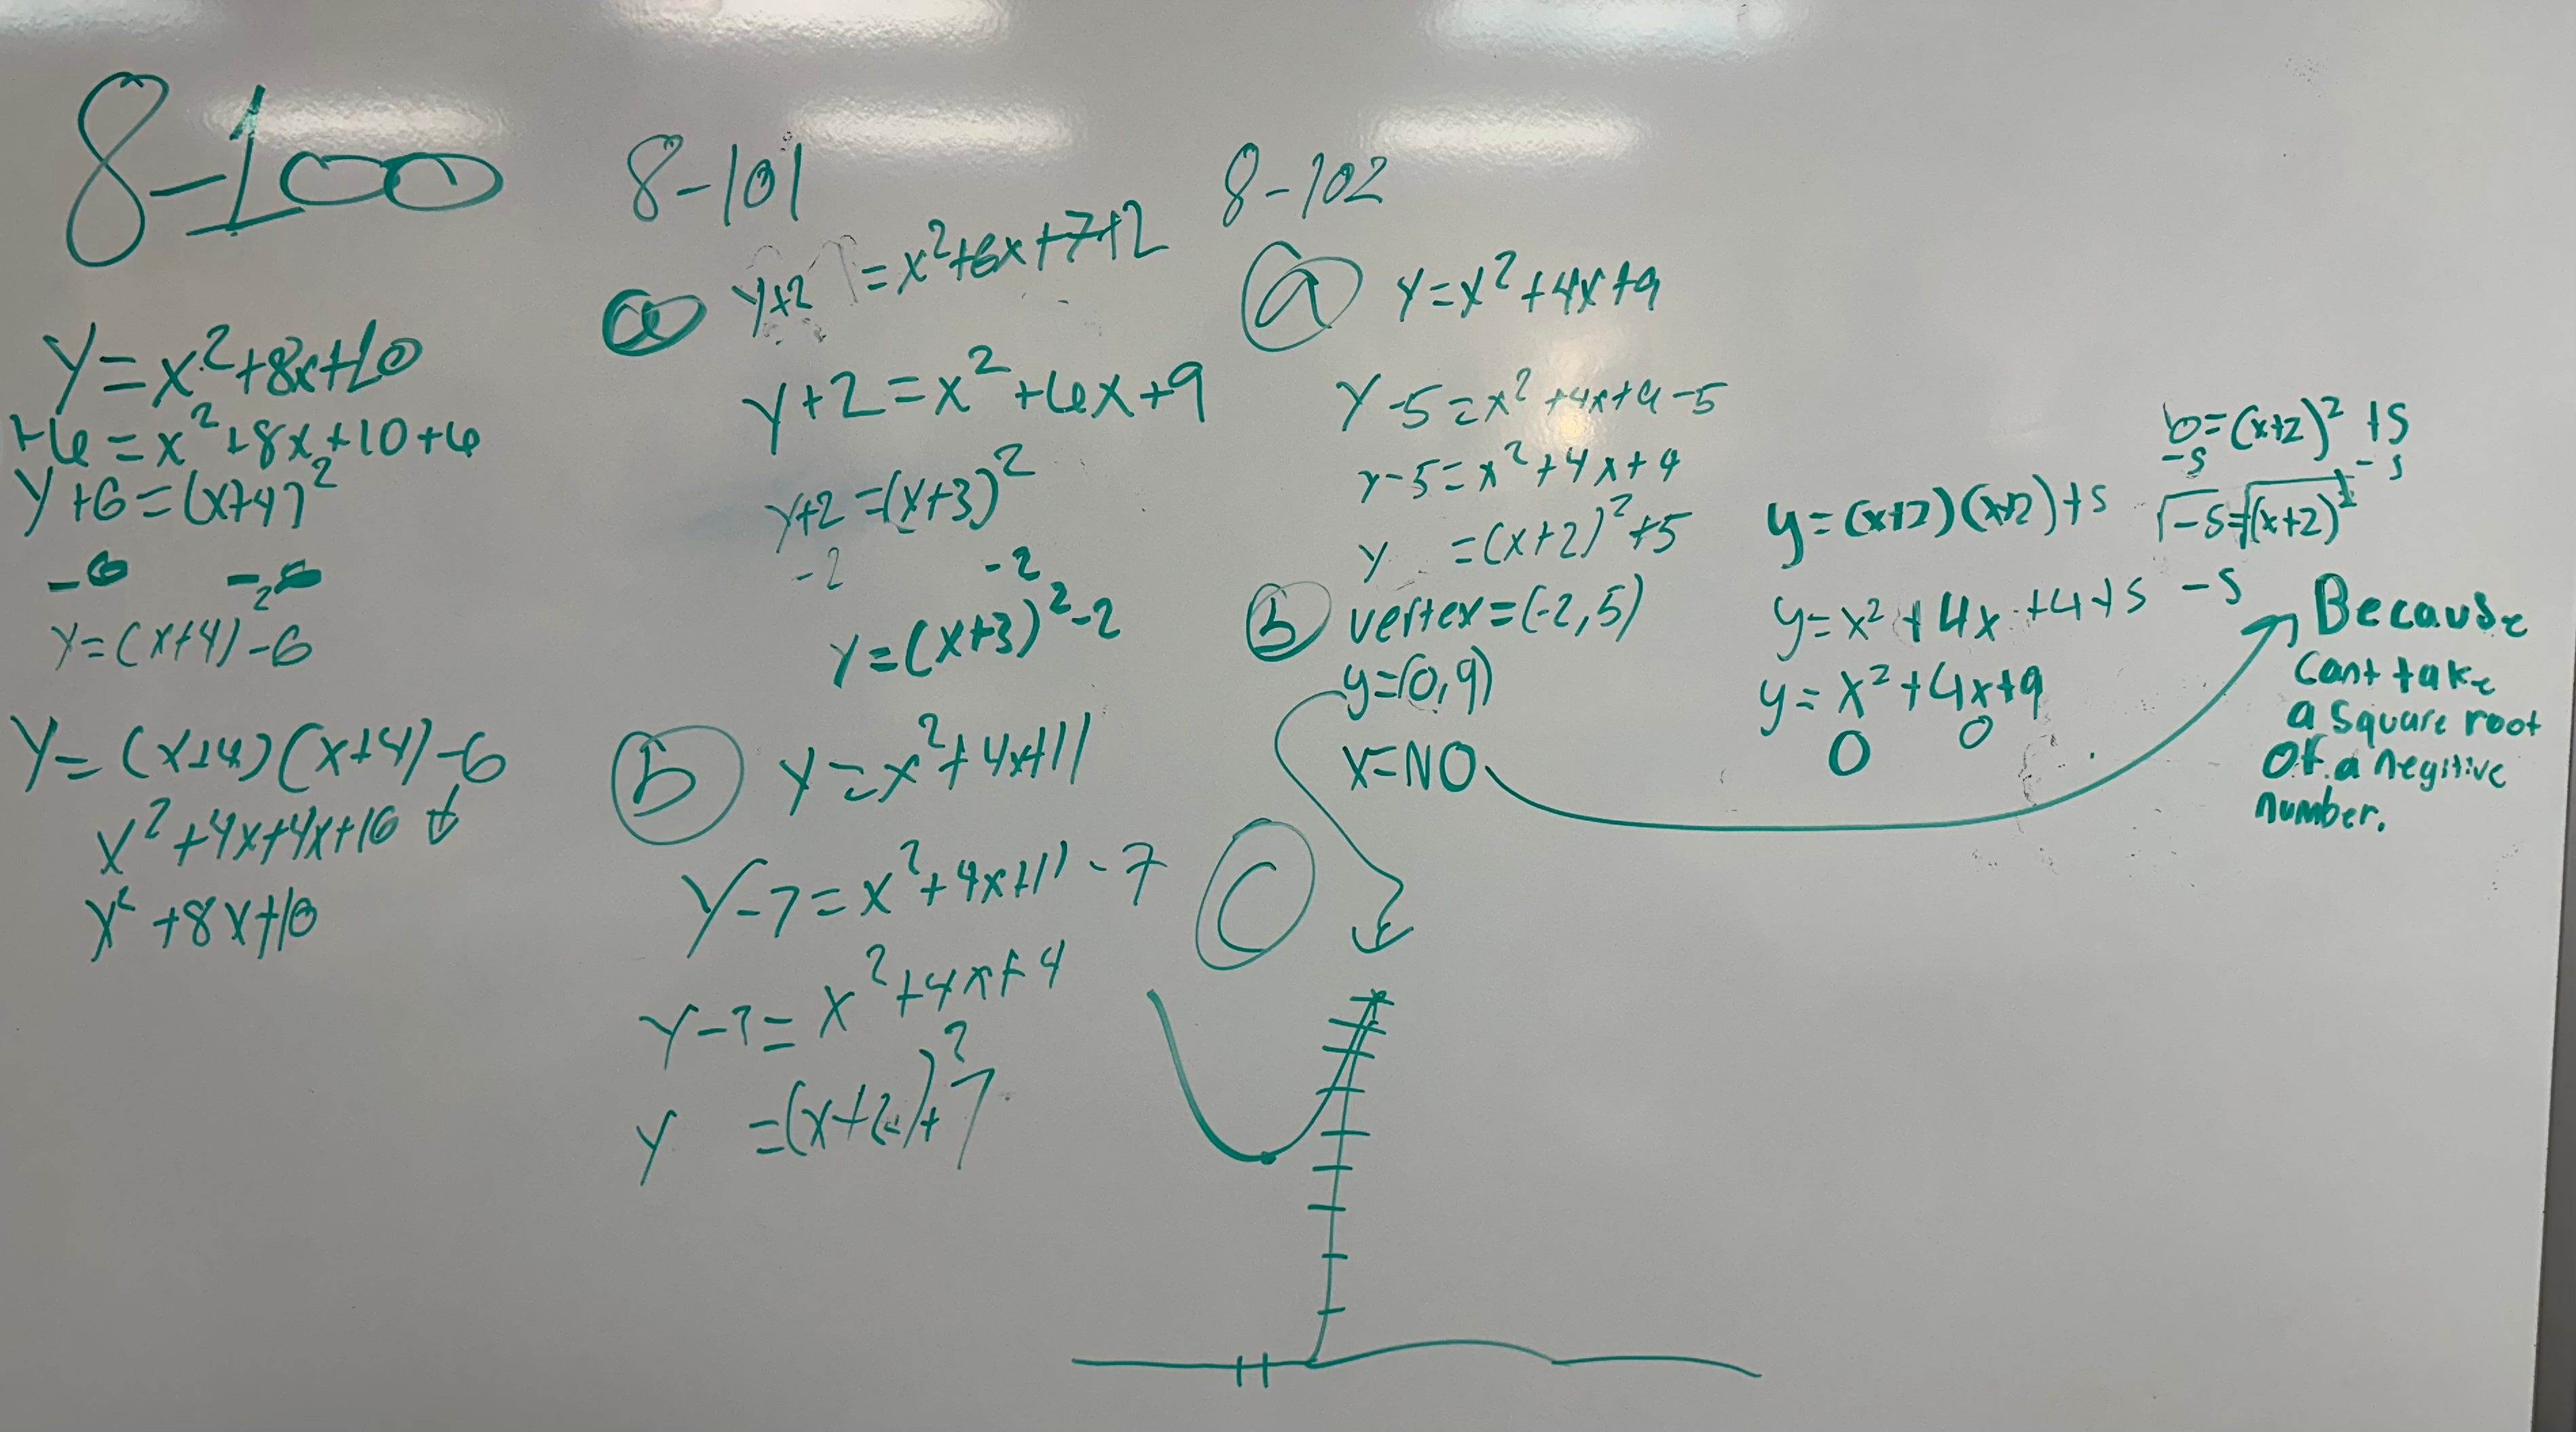 8-100
y=x²+8x+10
+6=x²+8x+10+6
y+6=(x+4)²
-6 -6
y=(x+4)²-6
y=(x+4)(x+4)-6
x²+4x+4x+16
x²+8x+10
8-101
a y+2=x²+6x+7+2
y+2=x²+6x+9
y+2=(x+3)²
-2 -2
y=(x+3)²-2
b y=x²+4x+11
y-7=x²+4x+11-7
y-7=x²+4x+4
y =(x+2)²+7
8-102
a y=x²+4x+9
y-5=x²+4x+9-5
y-5=x²+4x+4
y =(x+2)²+5
b vertex=(-2,5)
y=(0,9)
x=NO
C
y=(x+2)(x+2)+5
y=x²+4x+4+5 -5
y=x²+4x+9
0 0
0=(x+2)²+5
-5 -5
√-5=√(x+2)²
Because
cant take
a square root
of a negitive
number.